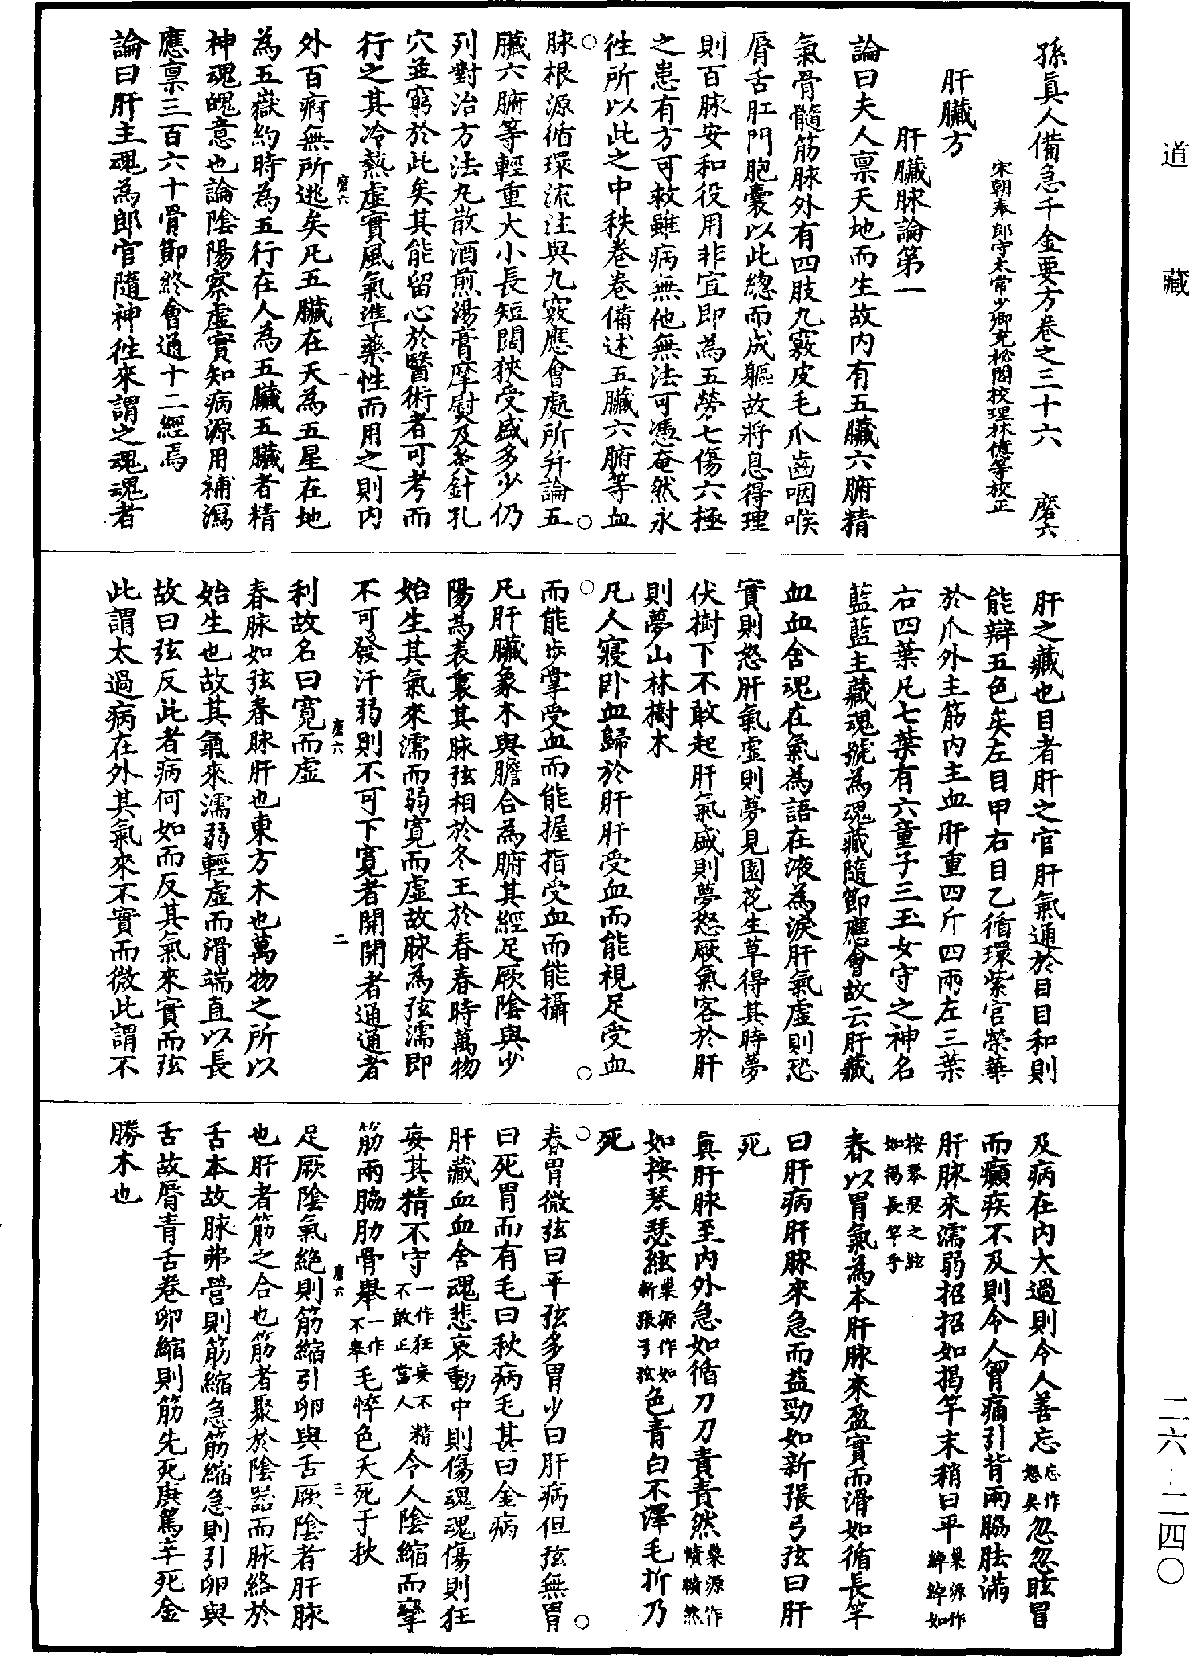 道藏
孫真人備急千金要方卷之三十六 磨六
宋朝奉郎守太常少卿充祕閣校理林億等校正
肝臟方
肝臟脉論第一
論曰夫人禀天地而生故內有五臟六腑精
氣骨髓筋脉外有四肢九竅皮毛爪齒咽喉
脣舌肛門胞囊以此總而成軀故將息得理
則百脉安和役用非宜即為五勞七傷六極
之患有方可救雖病無他無法可憑奄然永
徃所以此之中秩卷卷備述五臟六腑等血
脉根源循環流注與九竅應會處所并論五
臟六腑等輕重大小長短闊狹受盛多少仍
列對治方法丸散酒煎湯膏摩熨及灸針孔
穴並窮於此矣其能留心於醫術者可考而
行之其冷熱虛實風氣準藥性而用之則內
磨六 一
外百痾無所逃矣凡五臟在天為五星在地
為五嶽約時為五行在人為五臟五臟者精
神魂魄意也論陰陽察虛實知病源用補瀉
應禀三百六十骨節終會通十二經焉
論曰肝主魂為郎官隨神徃來謂之魂魂者
肝之藏也目者肝之官肝氣通於目目和則
能辯五色矣左目甲右目乙循環紫宮榮華
於爪外主筋內主血肝重四斤四兩左三葉
右四葉凡七葉有六童子三玉女守之神名
藍藍主藏魂號為魂藏隨節應會故云肝藏
血血舍魂在氣為語在液為淚肝氣虛則恐
實則怒肝氣虛則夢見園花生草得其時夢
伏樹下不敢起肝氣盛則夢怒厥氣客於肝
則夢山林樹木
凡人寢卧血歸於肝肝受血而能視足受血
而能步掌受血而能握指受血而能攝
凡肝臟象木與膽合為腑其經足厥陰與少
陽為表裏其脉弦相於冬王於春春時萬物
始生其氣來濡而弱寬而虛故脉為弦濡即
不可發汗弱則不可下寬者開開者通通者
磨六 二
利故名曰寬而虛
春脉如弦春脉肝也東方木也萬物之所以
始生也故其氣來濡弱輕虛而滑端直以長
故曰弦反此者病何如而反其氣來實而弦
此謂太過病在外其氣來不實而微此謂不
及病在內大過則令人善忘忘作怒矣忽忽眩冒
而癲疾不及則令人胷痛引背兩脇胠滿
肝脉來濡弱招招如揭竿末稍曰平巢源作綽綽如
按琴瑟之絃如揭長竿乎
春以胃氣為本肝脉來盈實而滑如循長竿
曰肝病肝脉來急而益勁如新張弓弦曰肝
死
真肝脉至內外急如循刀刃責責然巢源作賾賾然
如按琴瑟絃巢源作如新張弓弦色青白不澤毛折乃
死
春胃微弦曰平弦多胃少曰肝病但弦無胃
曰死胃而有毛曰秋病毛甚曰金病
肝藏血血舍魂悲哀動中則傷魂魂傷則狂
妄其精不守一作狂妄不精不敢正當人令人陰縮而攣
筋兩脇肋骨舉一作不舉毛悴色夭死于秋
磨六 三
足厥陰氣絶則筋縮引卵與舌厥陰者肝脉
也肝者筋之合也筋者聚於陰器而脉絡於
舌本故脉弗營則筋縮急筋縮急則引卵與
舌故脣青舌卷卵縮則筋先死庚篤辛死金
勝木也
二六·二四〇